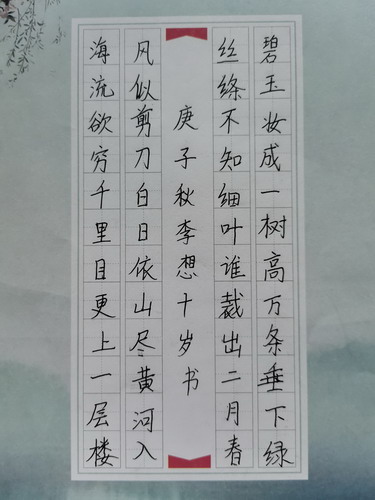 碧玉妆成一树高万条垂下绿
丝绦不知细叶谁裁出二月春
庚子秋李想十岁书
凡似剪刀白日依山尽黄河入
海流欲穷千里目更上一层楼